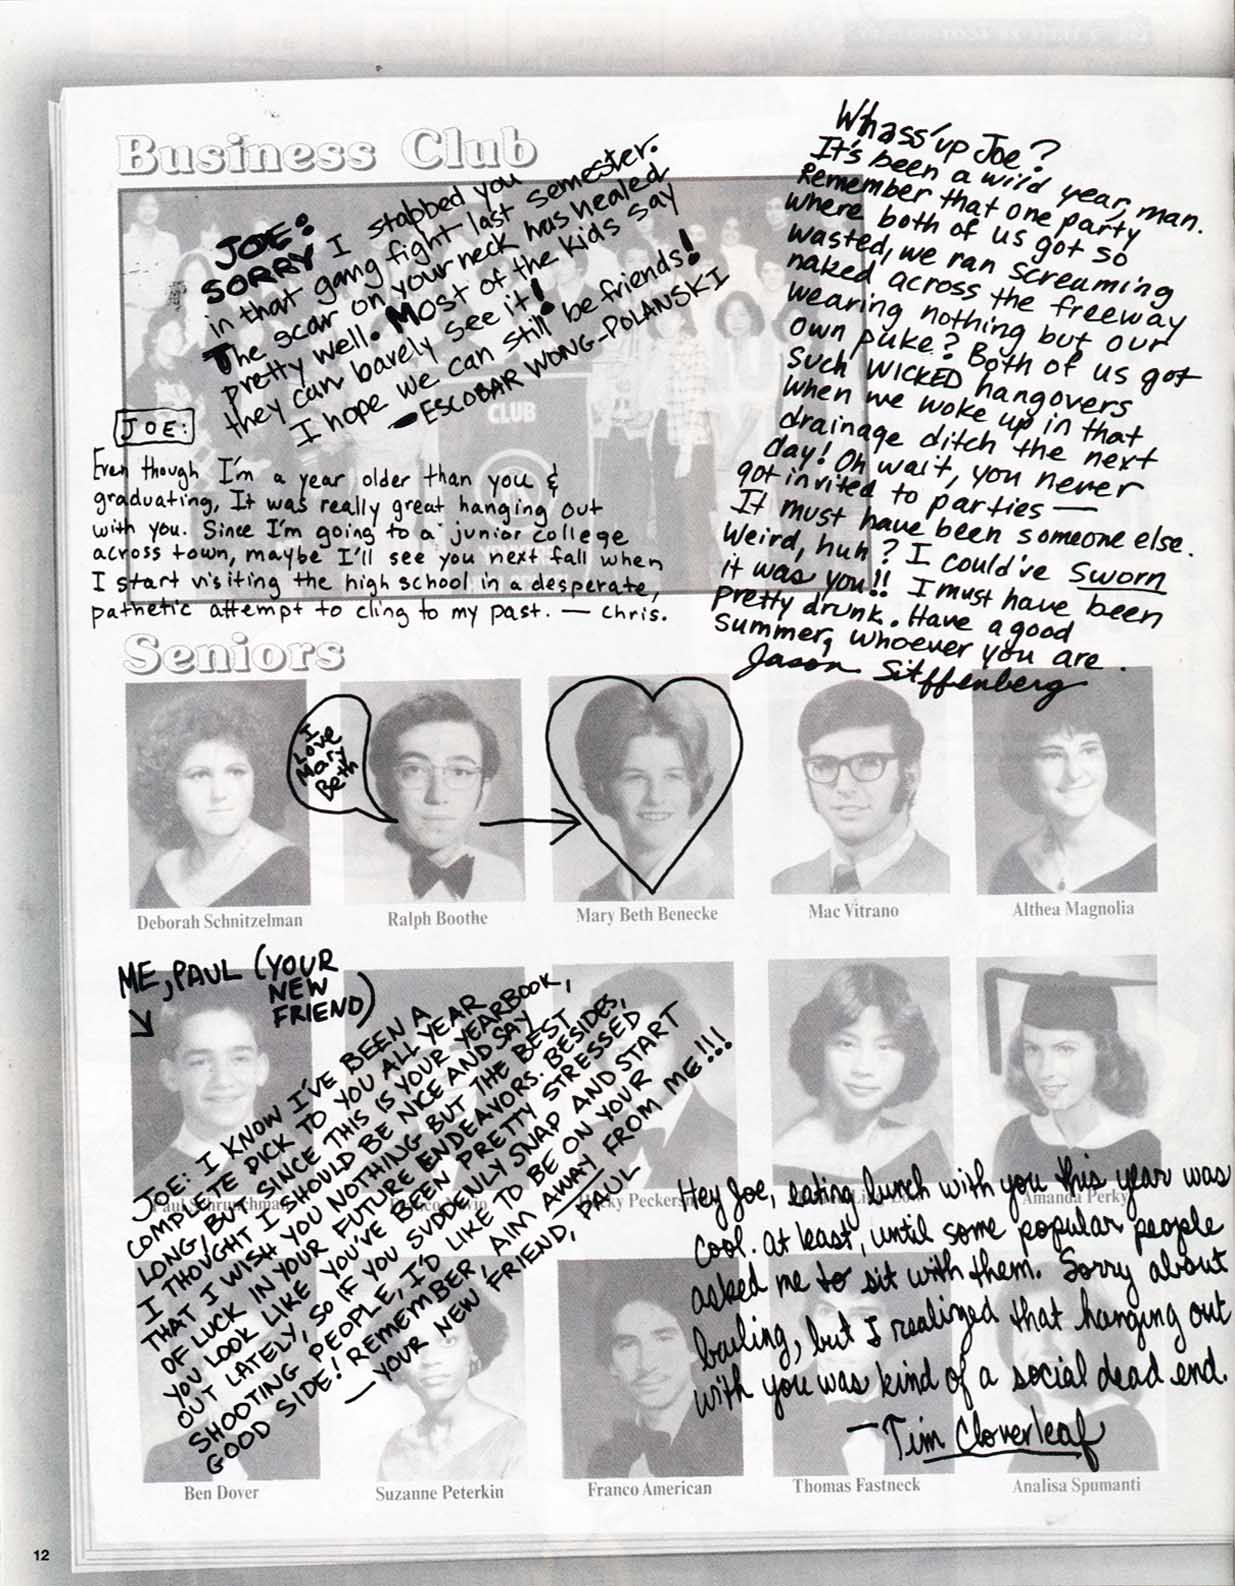 Business Club
JOE:
SORRY I stabbed you
in that gang fight last semester.
The scar on your neck has healed
pretty well. Most of the kids say
they can barely see it!
I hope we can still be friends!
— ESCOBAR WONG-POLANSKI
CLUB
Whass'up Joe?
It's been a wild year, man.
Remember that one party
where both of us got so
wasted, we ran screaming
naked across the freeway
wearing nothing but our
own puke? Both of us got
such WICKED hangovers
when we woke up in that
drainage ditch the next
day! Oh wait, you never
got invited to parties —
It must have been someone else.
Weird, huh? I could've Sworn
it was you!! I must have been
pretty drunk. Have a good
summer, whoever you are.
Jason Sitffenberg
JOE:
Even though I'm a year older than you &
graduating, It was really great hanging out
with you. Since I'm going to a junior college
across town, maybe I'll see you next fall when
I start visiting the high school in a desperate,
pathetic attempt to cling to my past. — Chris.
Seniors
I
Love
Mary
Beth
Deborah Schnitzelman
Ralph Boothe
Mary Beth Benecke
Mac Vitrano
Althea Magnolia
ME, PAUL (YOUR
NEW
FRIEND)
JOE: I KNOW I'VE BEEN A
COMPLETE DICK TO YOU ALL YEAR
LONG, BUT SINCE THIS IS YOUR YEARBOOK,
I THOUGHT I SHOULD BE NICE AND SAY
THAT I WISH YOU NOTHING BUT THE BEST
OF LUCK IN YOUR FUTURE ENDEAVORS. BESIDES,
YOU LOOK LIKE YOU'VE BEEN PRETTY STRESSED
OUT LATELY, SO IF YOU SUDDENLY SNAP AND START
SHOOTING PEOPLE, I'D LIKE TO BE ON YOUR
GOOD SIDE! REMEMBER, AIM AWAY FROM ME!!!
— YOUR NEW FRIEND, PAUL
Paul
Peckerson
Amanda Perky
Hey Joe, eating lunch with you this year was
cool. at least, until some popular people
asked me to sit with them. Sorry about
bailing, but I realized that hanging out
with you was kind of a social dead end.
— Tim Cloverleaf
Ben Dover
Suzanne Peterkin
Franco American
Thomas Fastneck
Analisa Spumanti
12